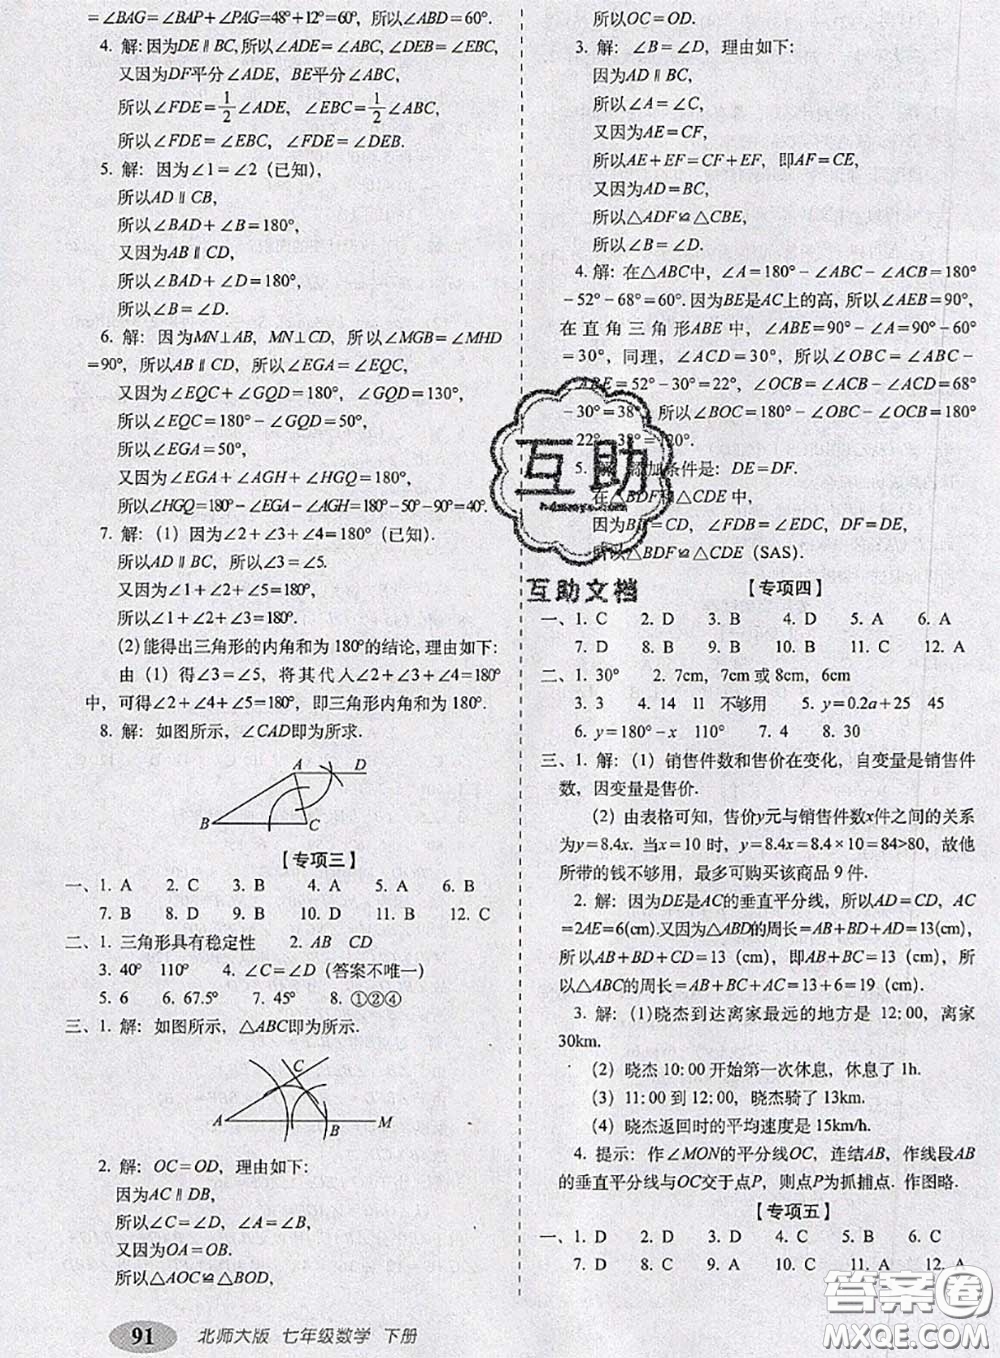 =∠BAG=∠BAP+∠PAG=48°+12°=60°, 所以∠ABD=60°.
4. 解: 因为DE∥BC, 所以∠ADE=∠ABC, ∠DEB=∠EBC,
又因为DF平分∠ADE, BE平分∠ABC,
所以∠FDE=1/2∠ADE, ∠EBC=1/2∠ABC,
所以∠FDE=∠EBC, ∠FDE=∠DEB.
5. 解: 因为∠1=∠2(已知),
所以AD∥CB,
所以∠BAD+∠B=180°,
又因为AB∥CD,
所以∠BAD+∠D=180°,
所以∠B=∠D.
6. 解: 因为MN⊥AB, MN⊥CD, 所以∠MGB=∠MHD
=90°, 所以AB∥CD, 所以∠EGA=∠EQC,
又因为∠EQC+∠GQD=180°, ∠GQD=130°,
所以∠EQC=180°-∠GQD=50°,
所以∠EGA=50°,
又因为∠EGA+∠AGH+∠HGQ=180°,
所以∠HGQ=180°-∠EGA-∠AGH=180°-50°-90°=40°.
7. 解: (1) 因为∠2+∠3+∠4=180°(已知).
所以AD∥BC, 所以∠3=∠5.
又因为∠1+∠2+∠5=180°,
所以∠1=∠4.
(2)能得出三角形的内角和为180°的结论, 理由如下:
由 (1) 得∠3=∠5, 将其代入∠2+∠3+∠4=180°
中, 可得∠2+∠4+∠5=180°, 即三角形内角和为180°.
8. 解: 如图所示, ∠CAD即为所求.
A D
B C
【专项三】
一、1. A 2. C 3. B 4. A 5. A 6. B
7. B 8. D 9. B 10. D 11. B 12. C
二、1. 三角形具有稳定性 2. AB CD
3. 40° 110° 4. ∠C=∠D (答案不唯一)
5. 6 6. 67.5° 7. 45° 8. ①②④
三、1. 解: 如图所示, △ABC即为所示.
C
A B M
2. 解: OC=OD, 理由如下:
因为AC∥DB,
所以∠C=∠D, ∠A=∠B.
又因为OA=OB.
所以△AOC≌△BOD,
所以OC=OD.
3. 解: ∠B=∠D, 理由如下:
因为AD∥BC,
所以∠A=∠C,
又因为AE=CF,
所以AE+EF=CF+EF, 即AF=CE,
又因为AD=BC,
所以△ADF≌△CBE,
所以∠B=∠D.
4. 解: 在△ABC中, ∠A=180°-∠ABC-∠ACB=180°
-52°-68°=60°. 因为BE是AC上的高, 所以∠AEB=90°,
在直角三角形ABE中, ∠ABE=90°-∠A=90°-60°
=30°, 同理, ∠ACD=30°, 所以∠OBC=∠ABC-
∠ABE=52°-30°=22°, ∠OCB=∠ACB-∠ACD=68°
-30°=38°, 所以∠BOC=180°-∠OBC-∠OCB=180°-
22°-38°=120°.
5. 解: 添加条件是: DE=DF.
在△BDF和△CDE中,
因为BD=CD, ∠FDB=∠EDC, DF=DE,
所以△BDF≌△CDE (SAS).
互助
互助文档
【专项四】
一、1. C 2. D 3. B 4. D 5. A 6. A
7. D 8. B 9. B 10. B 11. C 12. A
二、1. 30° 2. 7cm, 7cm 或 8cm, 6cm
3. 3 4. 14 11 不够用 5. y=0.2a+25 45
6. y=180°-x 110° 7. 4 8. 30
三、1. 解: (1) 销售件数和售价在变化, 自变量是销售件
数, 因变量是售价.
(2) 由表格可知, 售价y元与销售件数x件之间的关系
为y=8.4x. 当x=10 时, y=8.4x=8.4×10=84>80, 故他
所带的钱不够用, 最多可购买该商品 9 件.
2. 解: 因为DE是AC的垂直平分线, 所以AD=CD, AC
=2AE=6(cm).又因为△ABD的周长=AB+BD+AD=13(cm),
所以AB+BD+CD=13 (cm), 即AB+BC=13 (cm), 所
以△ABC的周长=AB+BC+AC=13+6=19 (cm).
3. 解: (1)晓杰到达离家最远的地方是 12:00, 离家
30km.
(2) 晓杰 10:00 开始第一次休息, 休息了 1h.
(3) 11:00 到 12:00, 晓杰骑了 13km.
(4) 晓杰返回时的平均速度是 15km/h.
4. 提示: 作∠MON的平分线OC, 连结AB, 作线段AB
的垂直平分线与OC交于点P, 则点P为抓捕点. 作图略.
【专项五】
一、1. D 2. D 3. D 4. B 5. C 6. C
7. D 8. B 9. D 10. A 11. B
91 北师大版 七年级数学 下册
答案圈
MXQE.COM